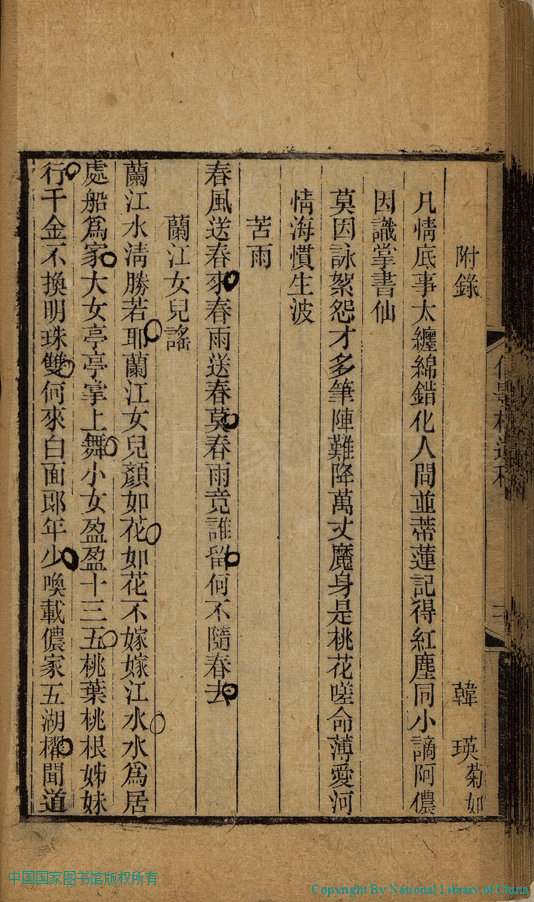 附錄
韓瑛菊如
凡情底事太纏綿錯化人間並蒂蓮記得紅塵同小謫阿儂
因識掌書仙
莫因詠絮怨才多筆陣難降萬丈魔身是桃花嗟命薄愛河
情海慣生波
苦雨
春風送春來春雨送春莫春雨竟誰留何不隨春去
蘭江女兒謠
蘭江水淸勝若耶蘭江女兒顏如花如花不嫁嫁江水水爲居
處船爲家大女亭亭掌上舞小女盈盈十三五桃葉桃根姊妹
行千金不換明珠雙何來白面郎年少喚載儂家五湖櫂聞道
中国国家图书馆版权所有
Copyright By National Library of China